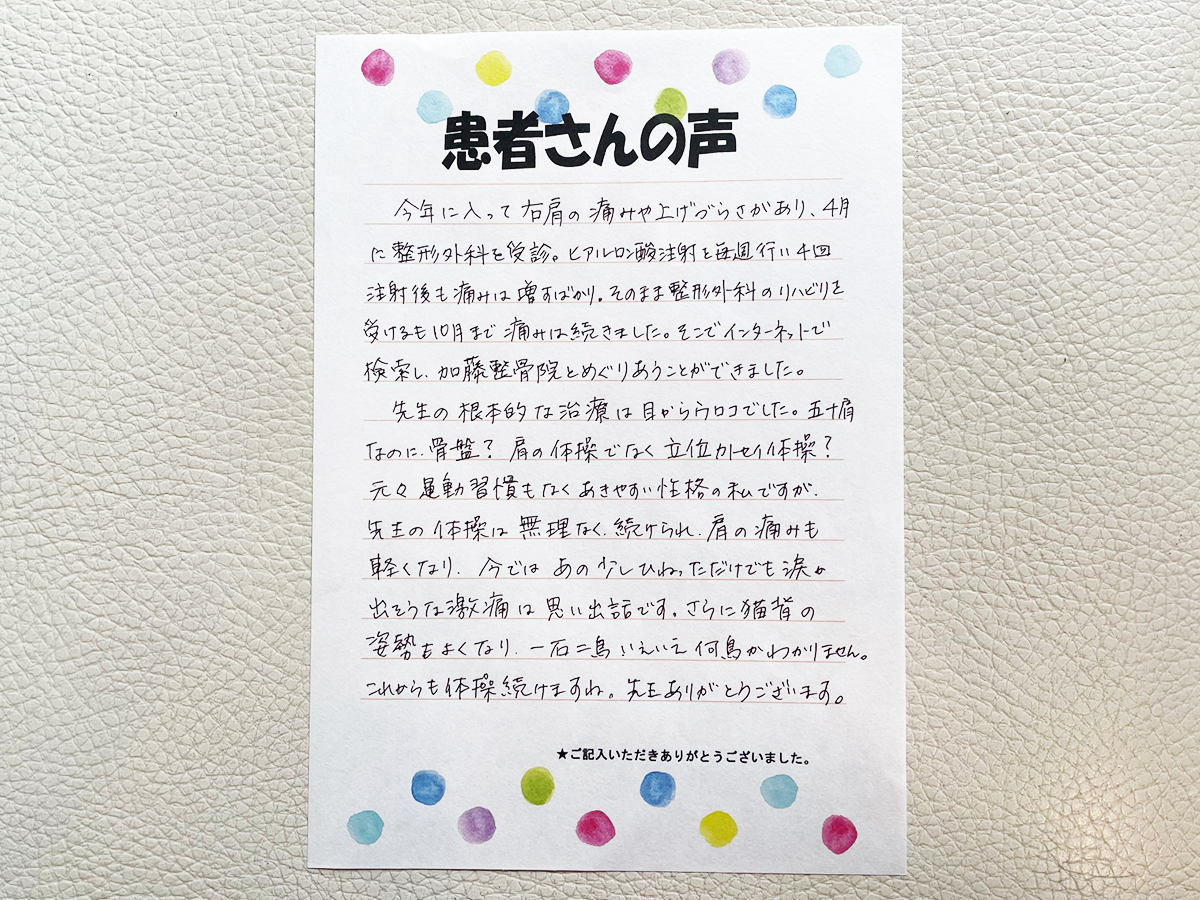 患者さんの声
今年に入って右肩の痛みや上げづらさがあり、4月
に整形外科を受診。ヒアルロン酸注射を毎週行い4回
注射後も痛みは増すばかり。そのまま整形外科のリハビリを
受けるも10月まで痛みは続きました。そこでインターネットで
検索し、加藤整骨院とめぐりあうことができました。
先生の根本的な治療は目からウロコでした。五十肩
なのに、骨盤？肩の体操でなく立位カトセイ体操？
元々運動習慣もなくあきやすい性格の私ですが、
先生の体操は無理なく、続けられ、肩の痛みも
軽くなり、今ではあの少しひねっただけでも涙が
出そうな激痛は思い出話です。さらに猫背の
姿勢もよくなり、一石二鳥いえいえ何鳥かわかりません。
これからも体操続けますね。先生ありがとうございます。
★ご記入いただきありがとうございました。